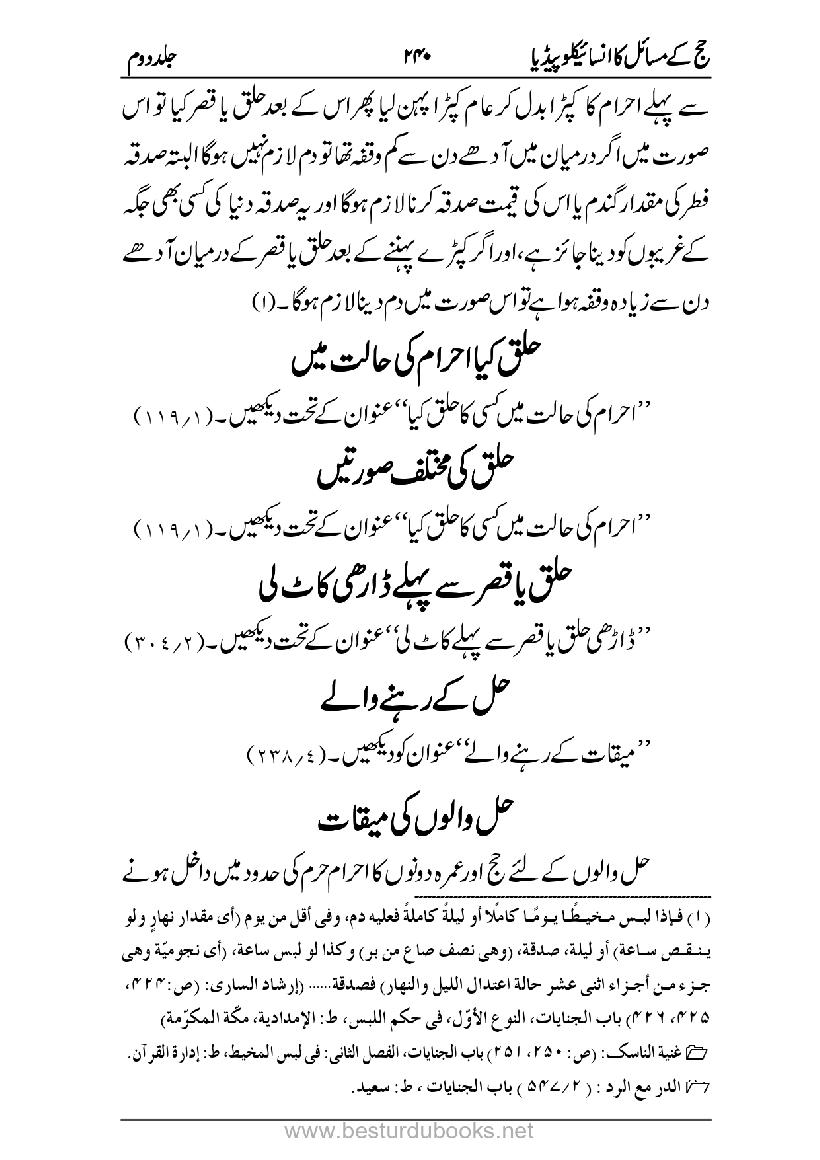 حج کے مسائل کا انسائیکلوپیڈیا ۲۴۰ جلد دوم
سے پہلے احرام کا کپڑا بدل کر عام کپڑا پہن لیا پھر اس کے بعد حلق یا قصر کیا تو اس
صورت میں اگر درمیان میں آدھے دن سے کم وقفہ تھا تو دم لازم نہیں ہوگا البتہ صدقہ
فطر کی مقدار گندم یا اس کی قیمت صدقہ کرنا لازم ہوگا اور یہ صدقہ دنیا کی کسی بھی جگہ
کے غریبوں کو دینا جائز ہے، اور اگر کپڑے پہننے کے بعد حلق یا قصر کے درمیان آدھے
دن سے زیادہ وقفہ ہوا ہے تو اس صورت میں دم دینا لازم ہوگا۔ (۱)
حلق کیا احرام کی حالت میں
’’احرام کی حالت میں کسی کا حلق کیا‘‘ عنوان کے تحت دیکھیں۔ (۱/۱۱۹)
حلق کی مختلف صورتیں
’’احرام کی حالت میں کسی کا حلق کیا‘‘ عنوان کے تحت دیکھیں۔ (۱/۱۱۹)
حلق یا قصر سے پہلے ڈارھی کاٹ لی
’’ڈاڑھی حلق یا قصر سے پہلے کاٹ لی‘‘ عنوان کے تحت دیکھیں۔ (۲/۳۰٤)
حل کے رہنے والے
’’میقات کے رہنے والے‘‘ عنوان کو دیکھیں۔ (٤/۲۳۸)
حل والوں کی میقات
حل والوں کے لئے حج اور عمرہ دونوں کا احرام حرم کی حدود میں داخل ہونے
(۱) فإذا لبس مخیطًا یومًا کاملًا أو لیلةً کاملةً فعلیه دم، وفی أقل من یوم (أی مقدار نهارٍ ولو
ینقص ساعة) أو لیلة، صدقة، (وهی نصف صاع من بر) وکذا لو لبس ساعة، (أی نجومیّة وهی
جزء من أجزاء اثنی عشر حالة اعتدال اللیل والنهار) فصدقة...... (إرشاد الساری: (ص: ۴۲۴،
۴۲۵، ۴۲۶) باب الجنایات، النوع الأوّل، فی حکم اللبس، ط: الإمدادیة، مکّة المکرّمة)
غنیة الناسک: (ص: ۲۵۰، ۲۵۱) باب الجنایات، الفصل الثانی: فی لبس المخیط، ط: إدارة القرآن.
الدر مع الرد : (۲/۵۴۷) باب الجنایات ، ط: سعید.
www.besturdubooks.net